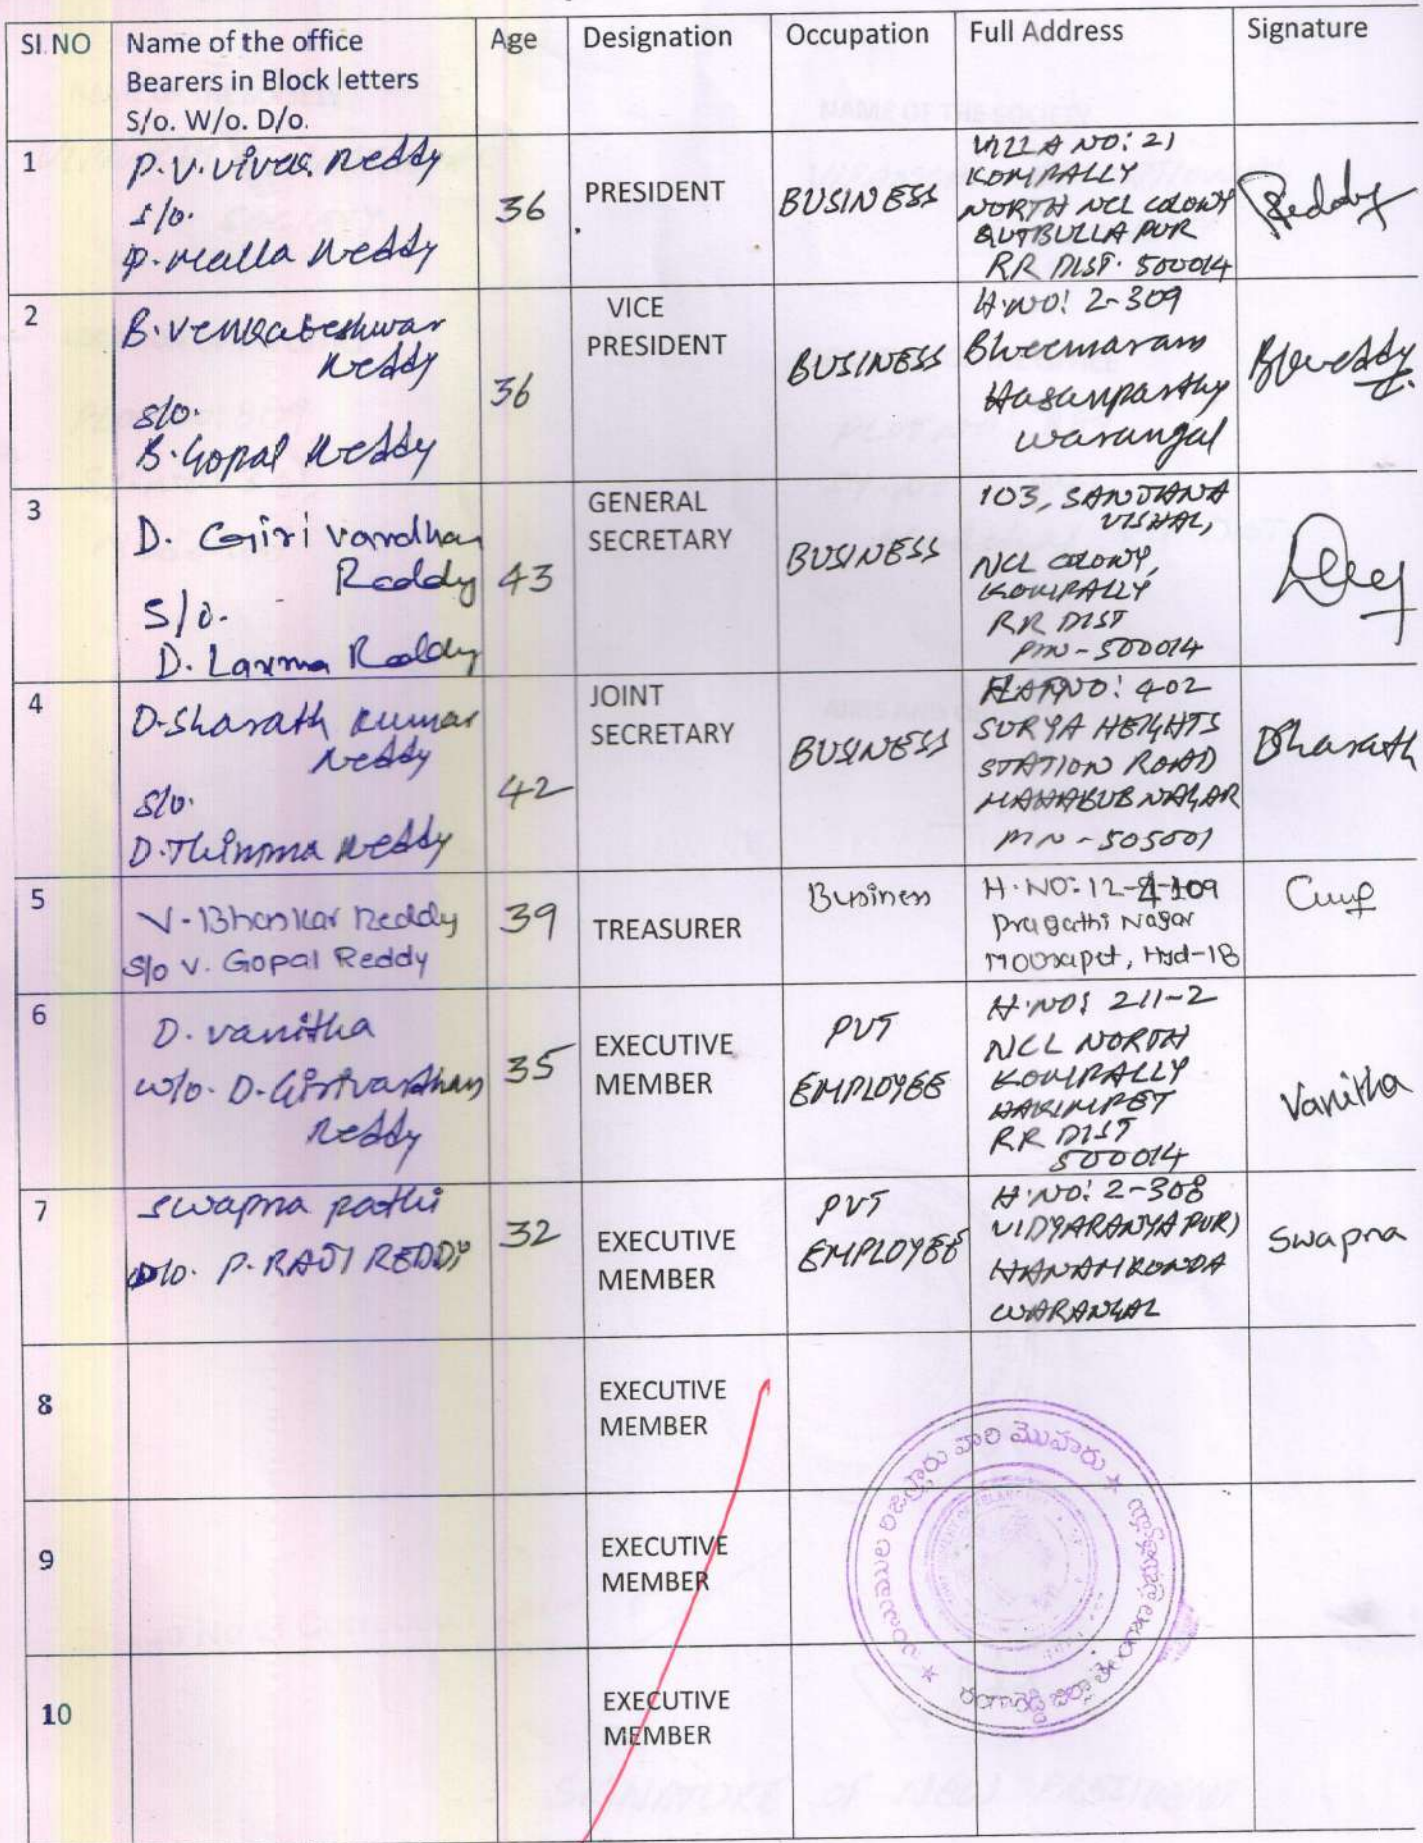 SI.NO Name of the office Age Designation Occupation Full Address Signature
Bearers in Block letters
S/o. W/o. D/o.
1
P.V. Vivek Reddy
S/o.
P. Malla Reddy
36
PRESIDENT
BUSINESS
VILLA NO: 21
KOMPALLY
NORTH NCL COLONY
QUTBULLAPUR
RR DIST. 500014
Reddy
2
B. Venkateshwar
Reddy
S/o.
B. Gopal Reddy
36
VICE
PRESIDENT
BUSINESS
H.NO: 2-309
Bheemaram
Hasanparthy
Warangal
BVReddy
3
D. Giri Vardhan
Reddy
S/o.
D. Laxma Reddy
43
GENERAL
SECRETARY
BUSINESS
103, SANJANA
VISHAL,
NCL COLONY,
KOMPALLY
RR DIST
PIN - 500014
4
D. Sharath Kumar
Reddy
S/o.
D. Thimma Reddy
42
JOINT
SECRETARY
BUSINESS
FLAT NO: 402
SURYA HEIGHTS
STATION ROAD
MAHABUBNAGAR
PIN - 505001
Sharath
5
V. Bhaskar Reddy
S/o V. Gopal Reddy
39
TREASURER
Business
H.NO: 12-4-109
Pragathi Nagar
Moosapet, Hyd-18
6
D. Vanitha
W/o. D. Girivardhan
Reddy
35
EXECUTIVE
MEMBER
PVT
EMPLOYEE
H.NO: 211-2
NCL NORTH
KOMPALLY
HAKIMPET
RR DIST
500014
Vanitha
7
Swapna Pathi
D/o. P. RAJI REDDY
32
EXECUTIVE
MEMBER
PVT
EMPLOYEE
H.NO: 2-308
VIDYARANYAPURI
HANAMKONDA
WARANGAL
Swapna
8
EXECUTIVE
MEMBER
9
EXECUTIVE
MEMBER
10
EXECUTIVE
MEMBER